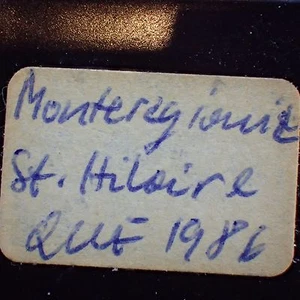 Monteregianit
St. Hilaire
QUE 1986